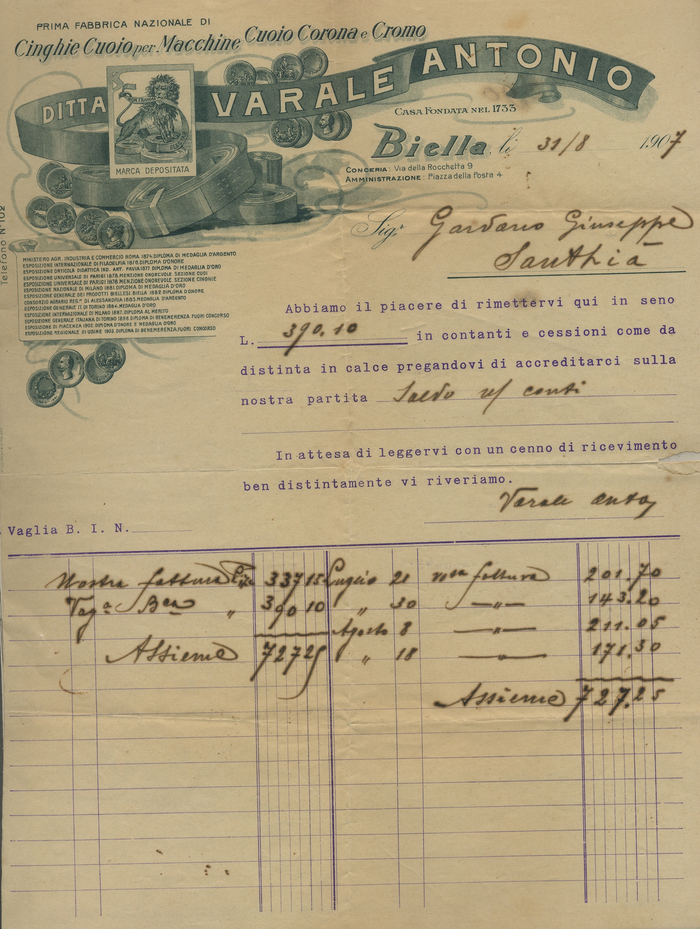 PRIMA FABBRICA NAZIONALE DI
Cinghie Cuoio per Macchine Cuoio Corona e Cromo
DITTA VARALE ANTONIO
MARCA DEPOSITATA
CASA FONDATA NEL 1733
Biella, li 31/8 1907
CONCERIA: Via della Rocchetta 9
AMMINISTRAZIONE: Piazza della Posta 4
Telefono N° 102
Sigr Gardano Giuseppe
Santhià
MINISTERO AGR. INDUSTRIA E COMMERCIO ROMA 1874. DIPLOMA DI MEDAGLIA D'ARGENTO
ESPOSIZIONE INTERNAZIONALE DI FILADELFIA 1876. DIPLOMA D'ONORE
ESPOSIZIONE ORTICOLA DIDATTICA IND. ART. PAVIA 1877. DIPLOMA DI MEDAGLIA D'ORO
ESPOSIZIONE UNIVERSALE DI PARIGI 1878. MENZIONE ONOREVOLE SEZIONE CUOI
ESPOSIZIONE UNIVERSALE DI PARIGI 1878. MENZIONE ONOREVOLE SEZIONE CINGHIE
ESPOSIZIONE NAZIONALE DI MILANO 1881. DIPLOMA DI MEDAGLIA D'ORO
ESPOSIZIONE GENERALE DEI PRODOTTI BIELLESI BIELLA 1882. DIPLOMA D'ONORE
CONSORZIO AGRARIO REG.le DI ALESSANDRIA 1885. MEDAGLIA D'ARGENTO
ESPOSIZIONE GENERALE IT. DI TORINO 1884. MEDAGLIA D'ORO
ESPOSIZIONE INTERNAZIONALE DI MILANO 1887. DIPLOMA AL MERITO
ESPOSIZIONE GENERALE ITALIANA DI TORINO 1898. DIPLOMA DI BENEMERENZA FUORI CONCORSO
ESPOSIZIONE DI PIACENZA 1902. DIPLOMA D'ONORE E MEDAGLIA D'ORO
ESPOSIZIONE REGIONALE DI UDINE 1903. DIPLOMA DI BENEMERENZA FUORI CONCORSO
Abbiamo il piacere di rimettervi qui in seno
L. 390.10 in contanti e cessioni come da
distinta in calce pregandovi di accreditarci sulla
nostra partita Saldo n/ conti
In attesa di leggervi con un cenno di ricevimento
ben distintamente vi riveriamo.
Varale Anto
Vaglia B. I. N.
Nostra fattura Lire 337 15 Luglio 21 vostra fattura 201.70
Vagª Bca " 390 10 " 30 —"— 143.20
Agosto 8 —"— 211.05
Assieme 727 25 " 18 —"— 171.30
Assieme 727.25